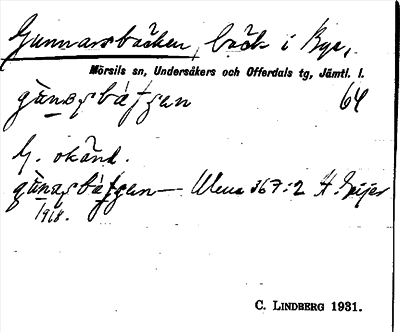 Gunnarsbäcken, bäck i Bye,
Mörsils sn, Undersåkers och Offerdals tg, Jämtl. l.
64
G. okänd.
Ulena 367:2 H. Geijer
1918.
C. LINDBERG 1931.